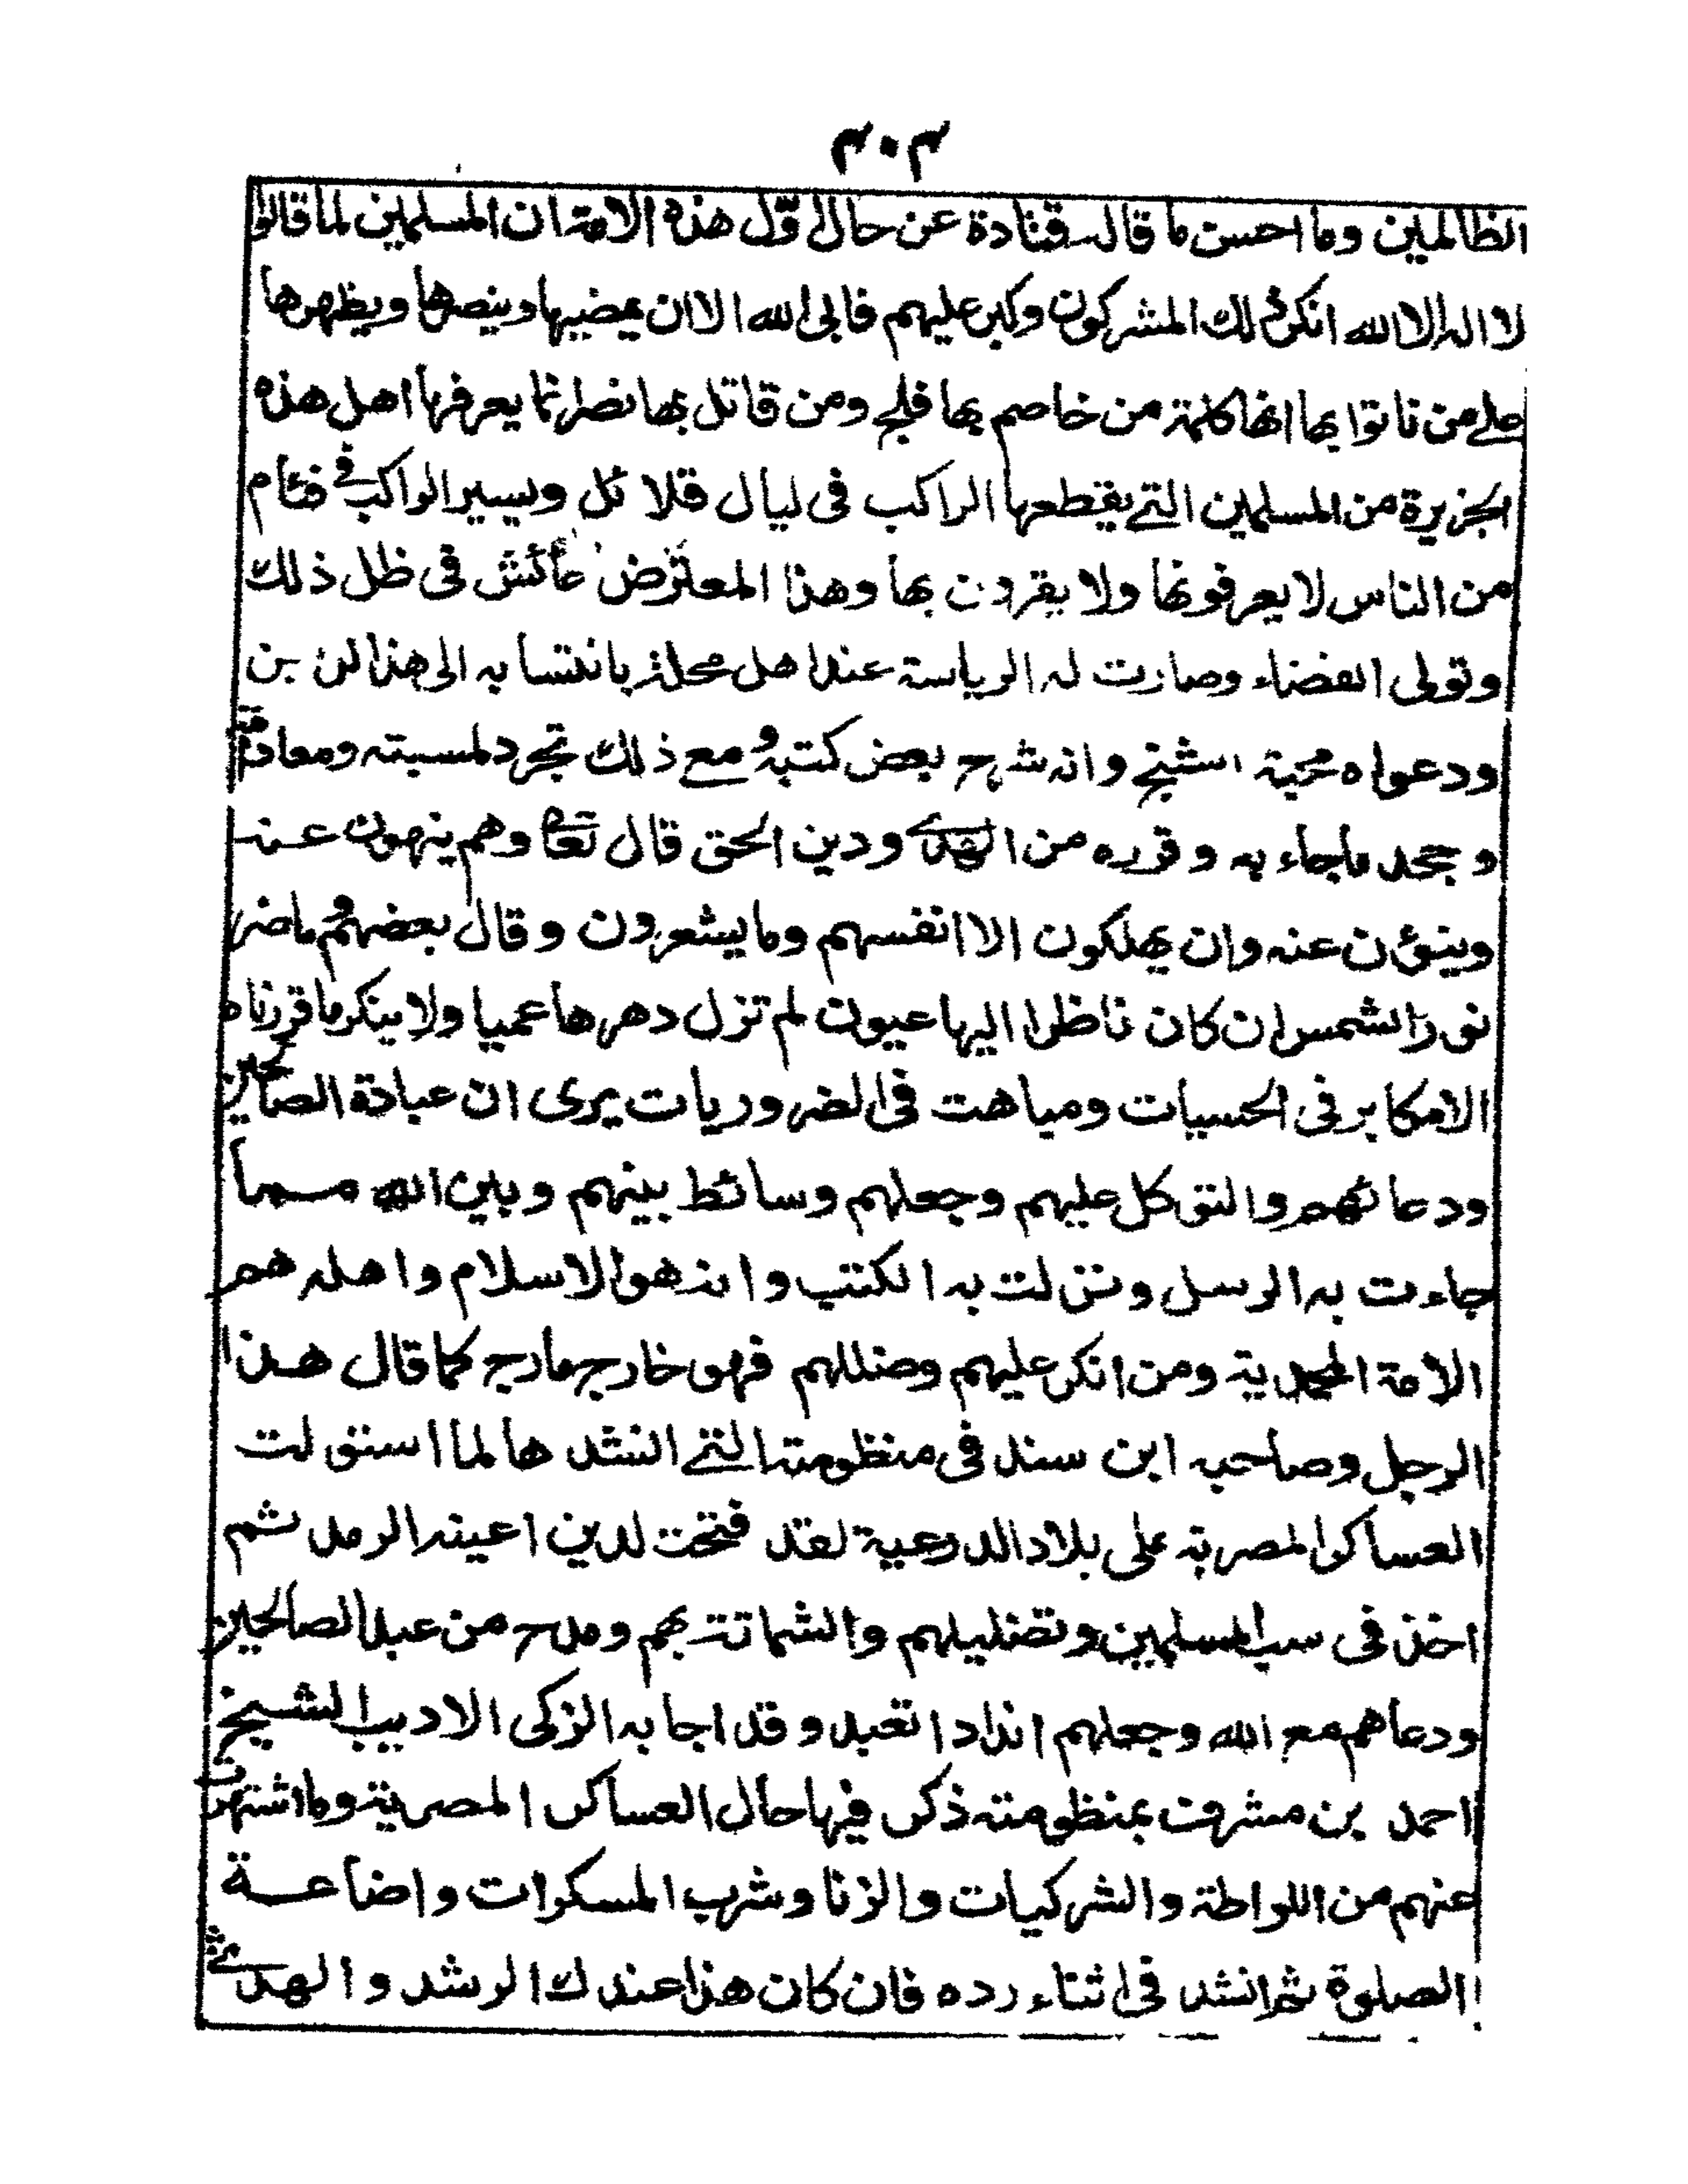 ٣٠٣
الظالمين وما احسن ما قاله قتادة عن حال اوّل هذه الامة ان المسلمين لما قالوا
لا اله الا الله انكر ذلك المشركون وكبر عليهم فابى الله الا ان يمضيها وينصرها ويظهرها
على من ناواه بها انها كلمة من خاصم بها فلج ومن قاتل بها نصر انما يعرفها اهل هذه
الجزيرة من المسلمين التي يقطعها الراكب فى ليال قلائل ويسير الراكب فى فئام
من الناس لا يعرفونها ولا يقرون بها وهذا المعترض عائش فى ظل ذلك
وتولى القضاء وصارت له الرياسة عند اهل محلته بانتسابه الى هذا الدين
ودعواه محبة الشيخ وانه شرح بعض كتبه ومع ذلك تجرد لمسبته ومعاداته
وجحد ماجاء به وقرره من الهدى ودين الحق قال تعا وهم ينهون عنه
وينؤن عنه وان يهلكون الا انفسهم وما يشعرون وقال بعضهم وما ضر
نور الشمس ان كان ناظرا اليها عيون لم تزل دهرها عميا ولا ينكر ما قررناه
الا مكابر فى الحسيات ومباهت فى الضروريات يرى ان عبادة الصالحين
ودعائهم والتوكل عليهم وجعلهم وسائط بينهم وبين الله مما
جاءت به الرسل ونزلت به الكتب وانه هو الاسلام واهله هم
الامة المحمدية ومن انكر عليهم وضللهم فهو خارجى مارج كما قال هذا
الرجل وصاحبه ابن سند فى منظومته التي انشدها لما استولت
العساكر المصرية على بلاد الدرعية لقد فتحت لدين اعينه الرمد ثم
اخذ فى سب المسلمين وتضليلهم والشماتة بهم ومدح من عبد الصالحين
ودعاهم مع الله وجعلهم اندادا تعبد وقد اجابه الزكى الاديب الشيخ
احمد بن مشرف بمنظومته ذكر فيها حال العساكر المصرية وما اشتهرت
عنهم من اللواطة والشركيات والزنا وشرب المسكرات واضاعة
الصلوة ثم انشد فى اثناء رده فان كان هذا عندك الرشد والهدى